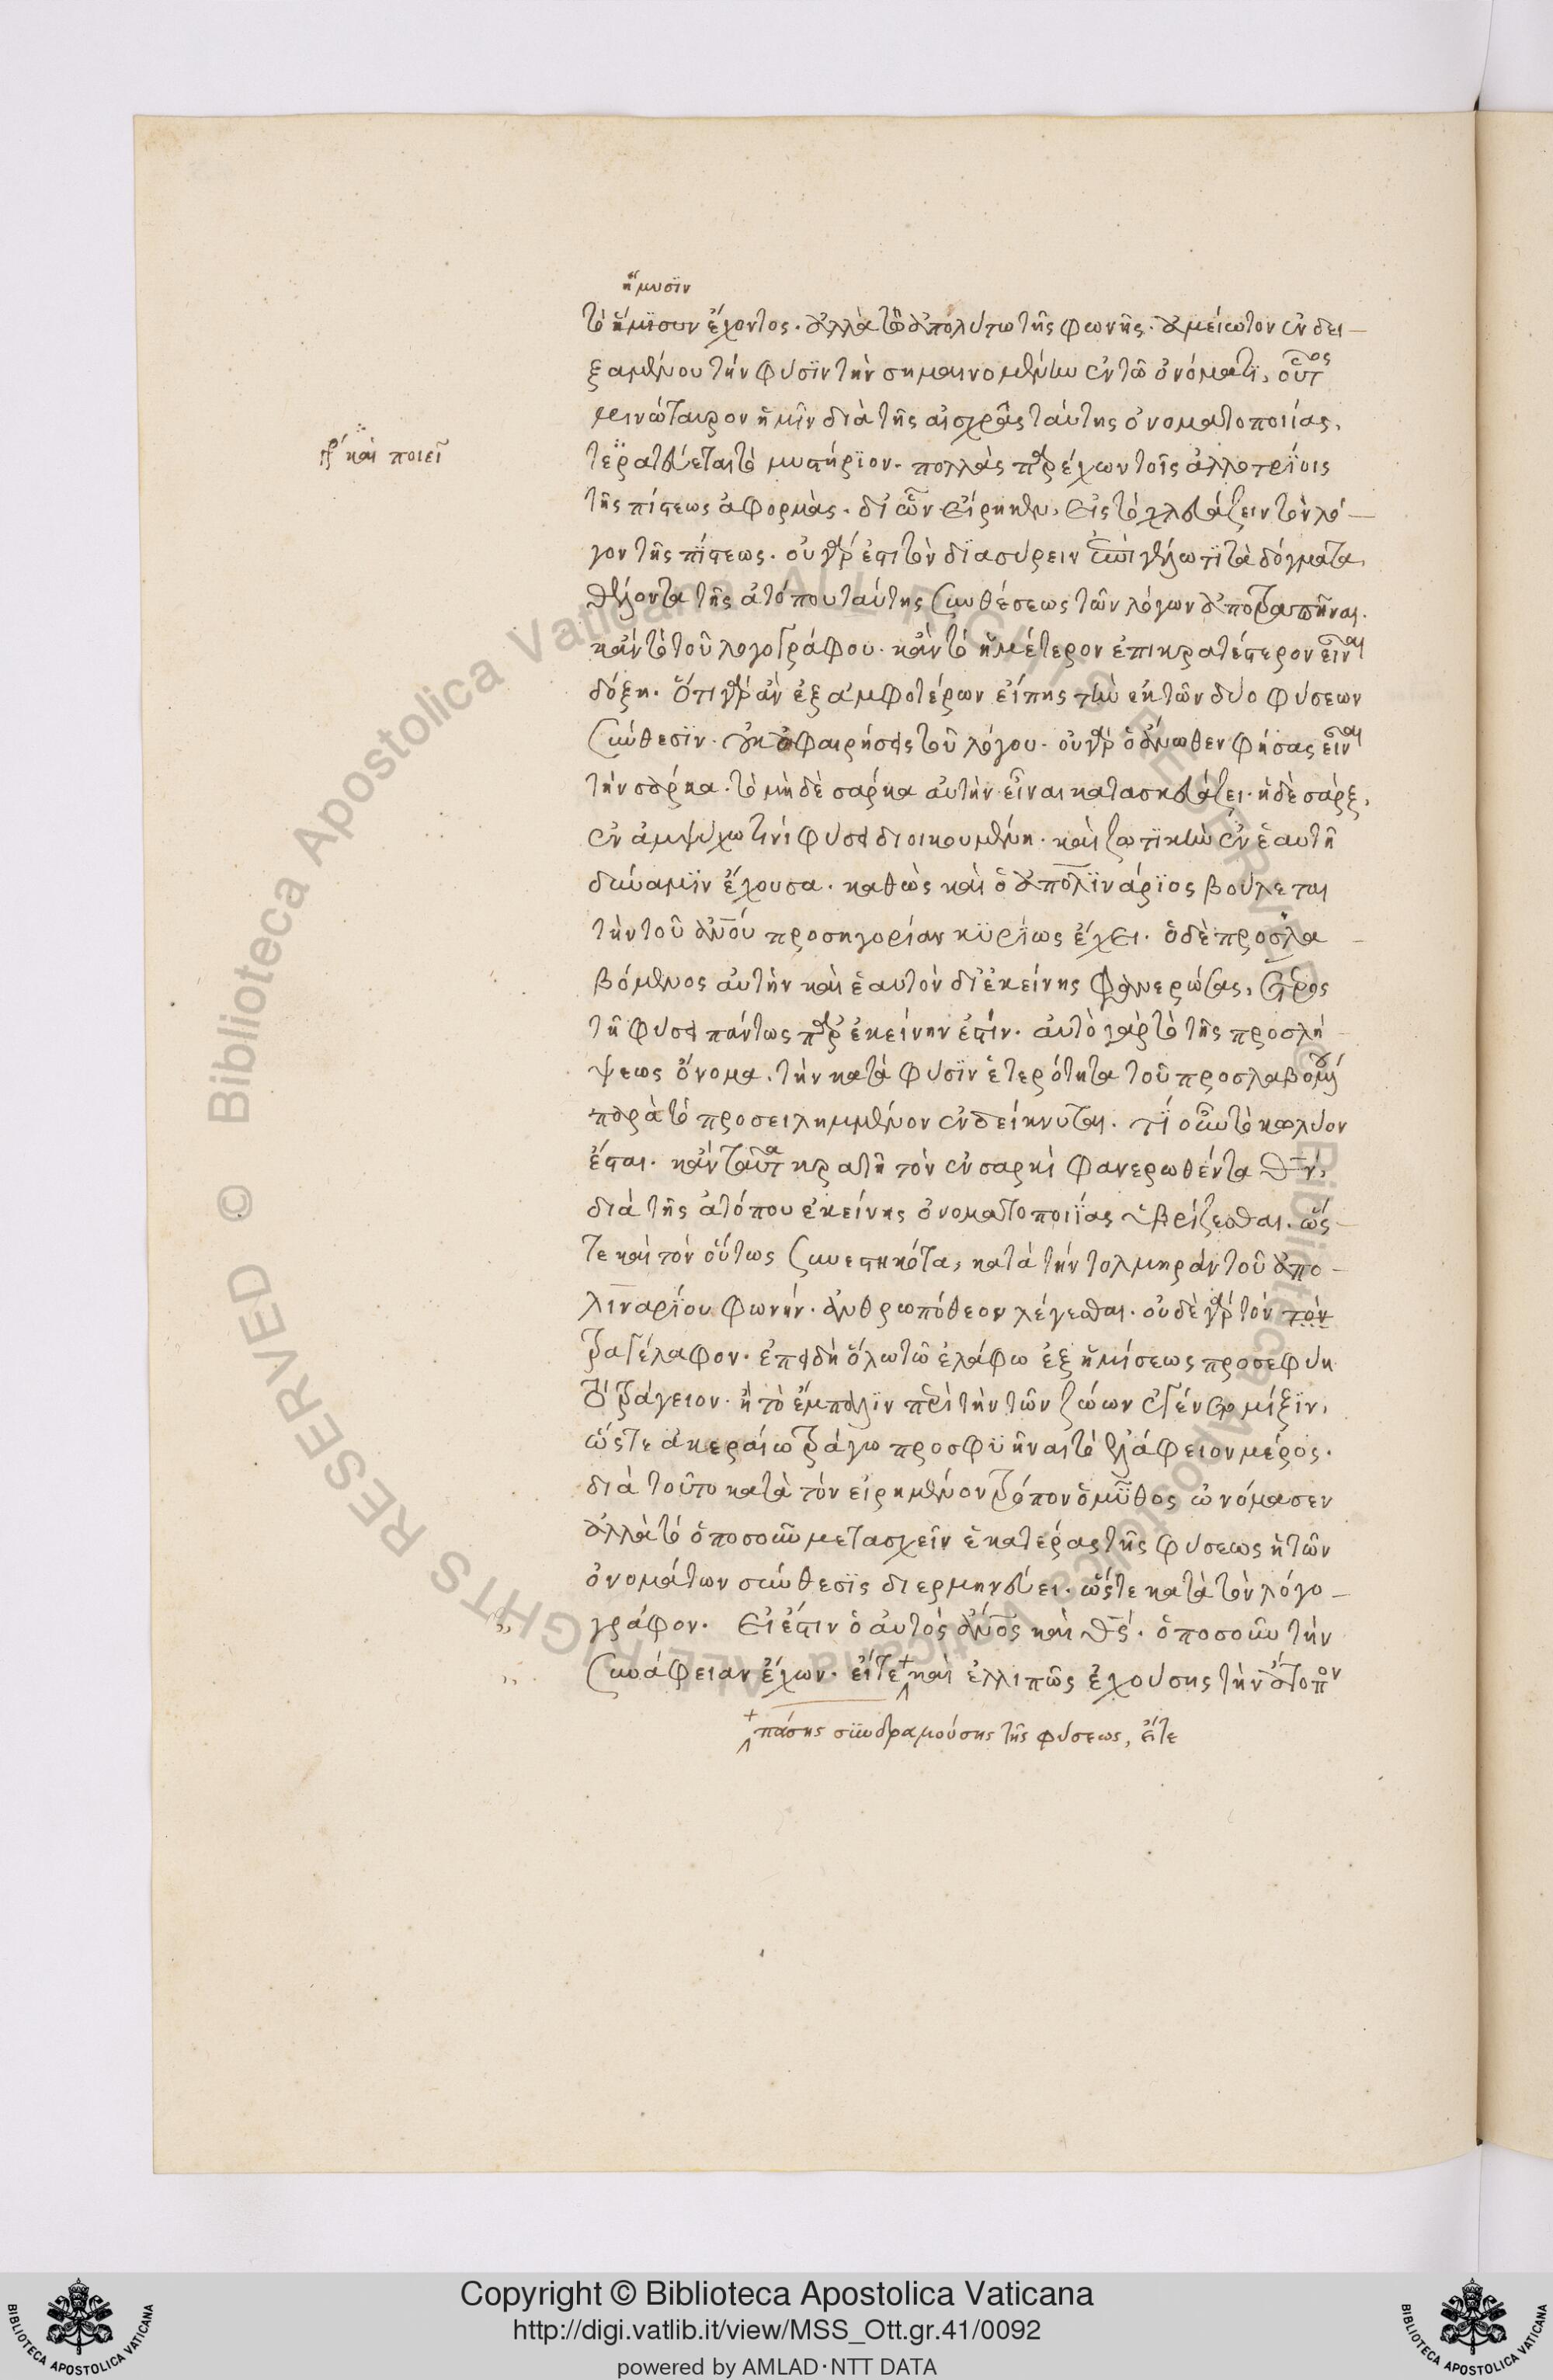 ἥμυσϊν
τὸ ἥμϊσυν ἔχοντος. ἀλλὰ τῶ ἀπολύτω τῆς φωνῆς. ἀμείωτον ἐνδει-
ξαμένου τὴν φύσϊν τὴν σημαινομένην ἐν τῶ ὀνόματϊ, οὗτος
καινώταιρον ἡμῖν διὰ τῆς αἰσχρᾶς ταύτης ὀνοματοποιίας,
γρ καὶ ποιεῖ
τερατεύεται τὸ μυστήρϊον. πολλὰς παρέχων τοῖς ἀλλοτρϊοις
τῆς πίστεως ἀφορμὰς. δι' ὧν εἴρηκεν, εἰς τὸ χλευάζειν τὸν λό-
γον τῆς πίστεως. οὐ γάρ ἐστι τὸν δϊασύρειν ἐπὶ γέλωτϊ τὰ δόγματα
θέλοντα τῆς ἀτόπου ταύτης συνθέσεως τῶν λόγων ἀποτραπῆναι.
κἂν τὸ τοῦ λογογράφου. κἂν τὸ ἡμέτερον ἐπικρατέστερον εἶναι
δόξη. ὅτι γὰρ ἂν ἐξ ἀμφοτέρων εἴπης τὴν ἐκ τῶν δύο φύσεων
σύνθεσϊν. οὐκ ἀφαιρήσεις τοῦ λόγου. οὐ γὰρ ὁ ἄνωθεν φήσας εἶναι
τὴν σάρκα. τὸ μὴ δὲ σαρκα αὐτὴν εἶναι κατασκευάζει. ἡ δὲ σάρξ,
ἐν ἀμψύχω τινὶ φύσει διοικουμένη. καὶ ζωτϊκὴν ἐν ἑαυτῆ
δύναμϊν ἔχουσα. καθὼς καὶ ὁ ἀπολϊνάρϊος βούλεται
τὴν τοῦ ἀνου προσηγορίαν κϋρϊως ἔχει. ὁ δὲ προσλα-
βόμενος αὐτὴν καὶ ἑαυτὸν δι' ἐκείνης φανερώσας, ἕτερος
τῆ φύσει πάντως παρ' ἐκείνην ἐστίν. αὐτὸ γὰρ τὸ τῆς προσλή-
ψεως ὄνομα. τὴν κατὰ φύσϊν ἑτερότητα τοῦ προσλαβομένου
παρὰ τὸ προσειλημμένον ἐνδείκνυται. τϊ οὖν τὸ κωλύον
ἔσται. κἂν ταῦτα κρατῆ τὸν ἐν σαρκὶ φανερωθέντα θν,
διὰ τῆς ἀτόπου ἐκείνης ὀνοματοποιϊας ὑβρίζεσθαι. ὥς-
τε καὶ τὸν οὕτως συνεστηκότα, κατὰ τὴν τολμηρὰν τοῦ ἀπο-
λιναρϊου φωνήν. ἀνθρωπόθεον λέγεσθαι. οὐδὲ γὰρ τὸν τὸν
τραγέλαφον. ἐπειδὴ ὅλω τῶ ἐλάφω ἐξ ἡμίσεως προσεφύη
τὸ τράγειον. ἢ τὸ ἔμπαλϊν περὶ τὴν τῶν ζώων ἐγένετο μίξϊν,
ὥστε ἀκεραίω τράγω προσφϋῆναι τὸ ἐλάφειον μέρος.
διὰ τοῦτο κατὰ τὸν εἰρημένον τρόπον ὁ μῦθος ὠνόμασεν
ἀλλὰ τὸ ὁποσοῦν μετασχεῖν ἑκατέρας τῆς φύσεως ἡ τῶν
ὀνομάτων σύνθεσϊς διερμηνεύει. ὥστε κατὰ τὸν λόγο-
γράφον. εἰ ἐστιν ὁ αὐτὸς ἄνος καὶ θς. ὁποσοῦν τὴν
συνάφειαν ἔχων. εἴτε καὶ ἐλλιπῶς ἐχούσης τὴν ἄτοπον
πάσης συνδραμούσης τῆς φύσεως, εἴτε
Copyright © Biblioteca Apostolica Vaticana
http://digi.vatlib.it/view/MSS_Ott.gr.41/0092
powered by AMLAD·NTT DATA